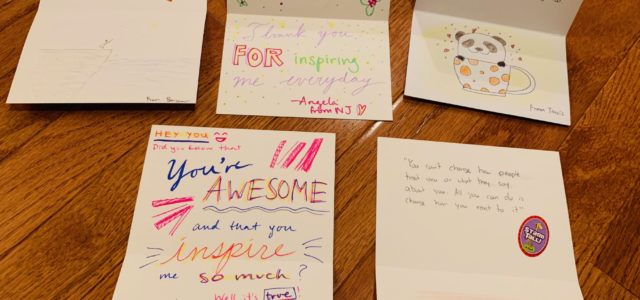 Thank you
FOR inspiring
me everyday
—Angela
from NJ
From Travis
HEY YOU
Did you know that
You're
AWESOME
and that you
inspire
me so much?
Well it's true!
"You can't change how people
treat you or what they say
about you. All you can do is
change how you react to it"
STAND TALL!